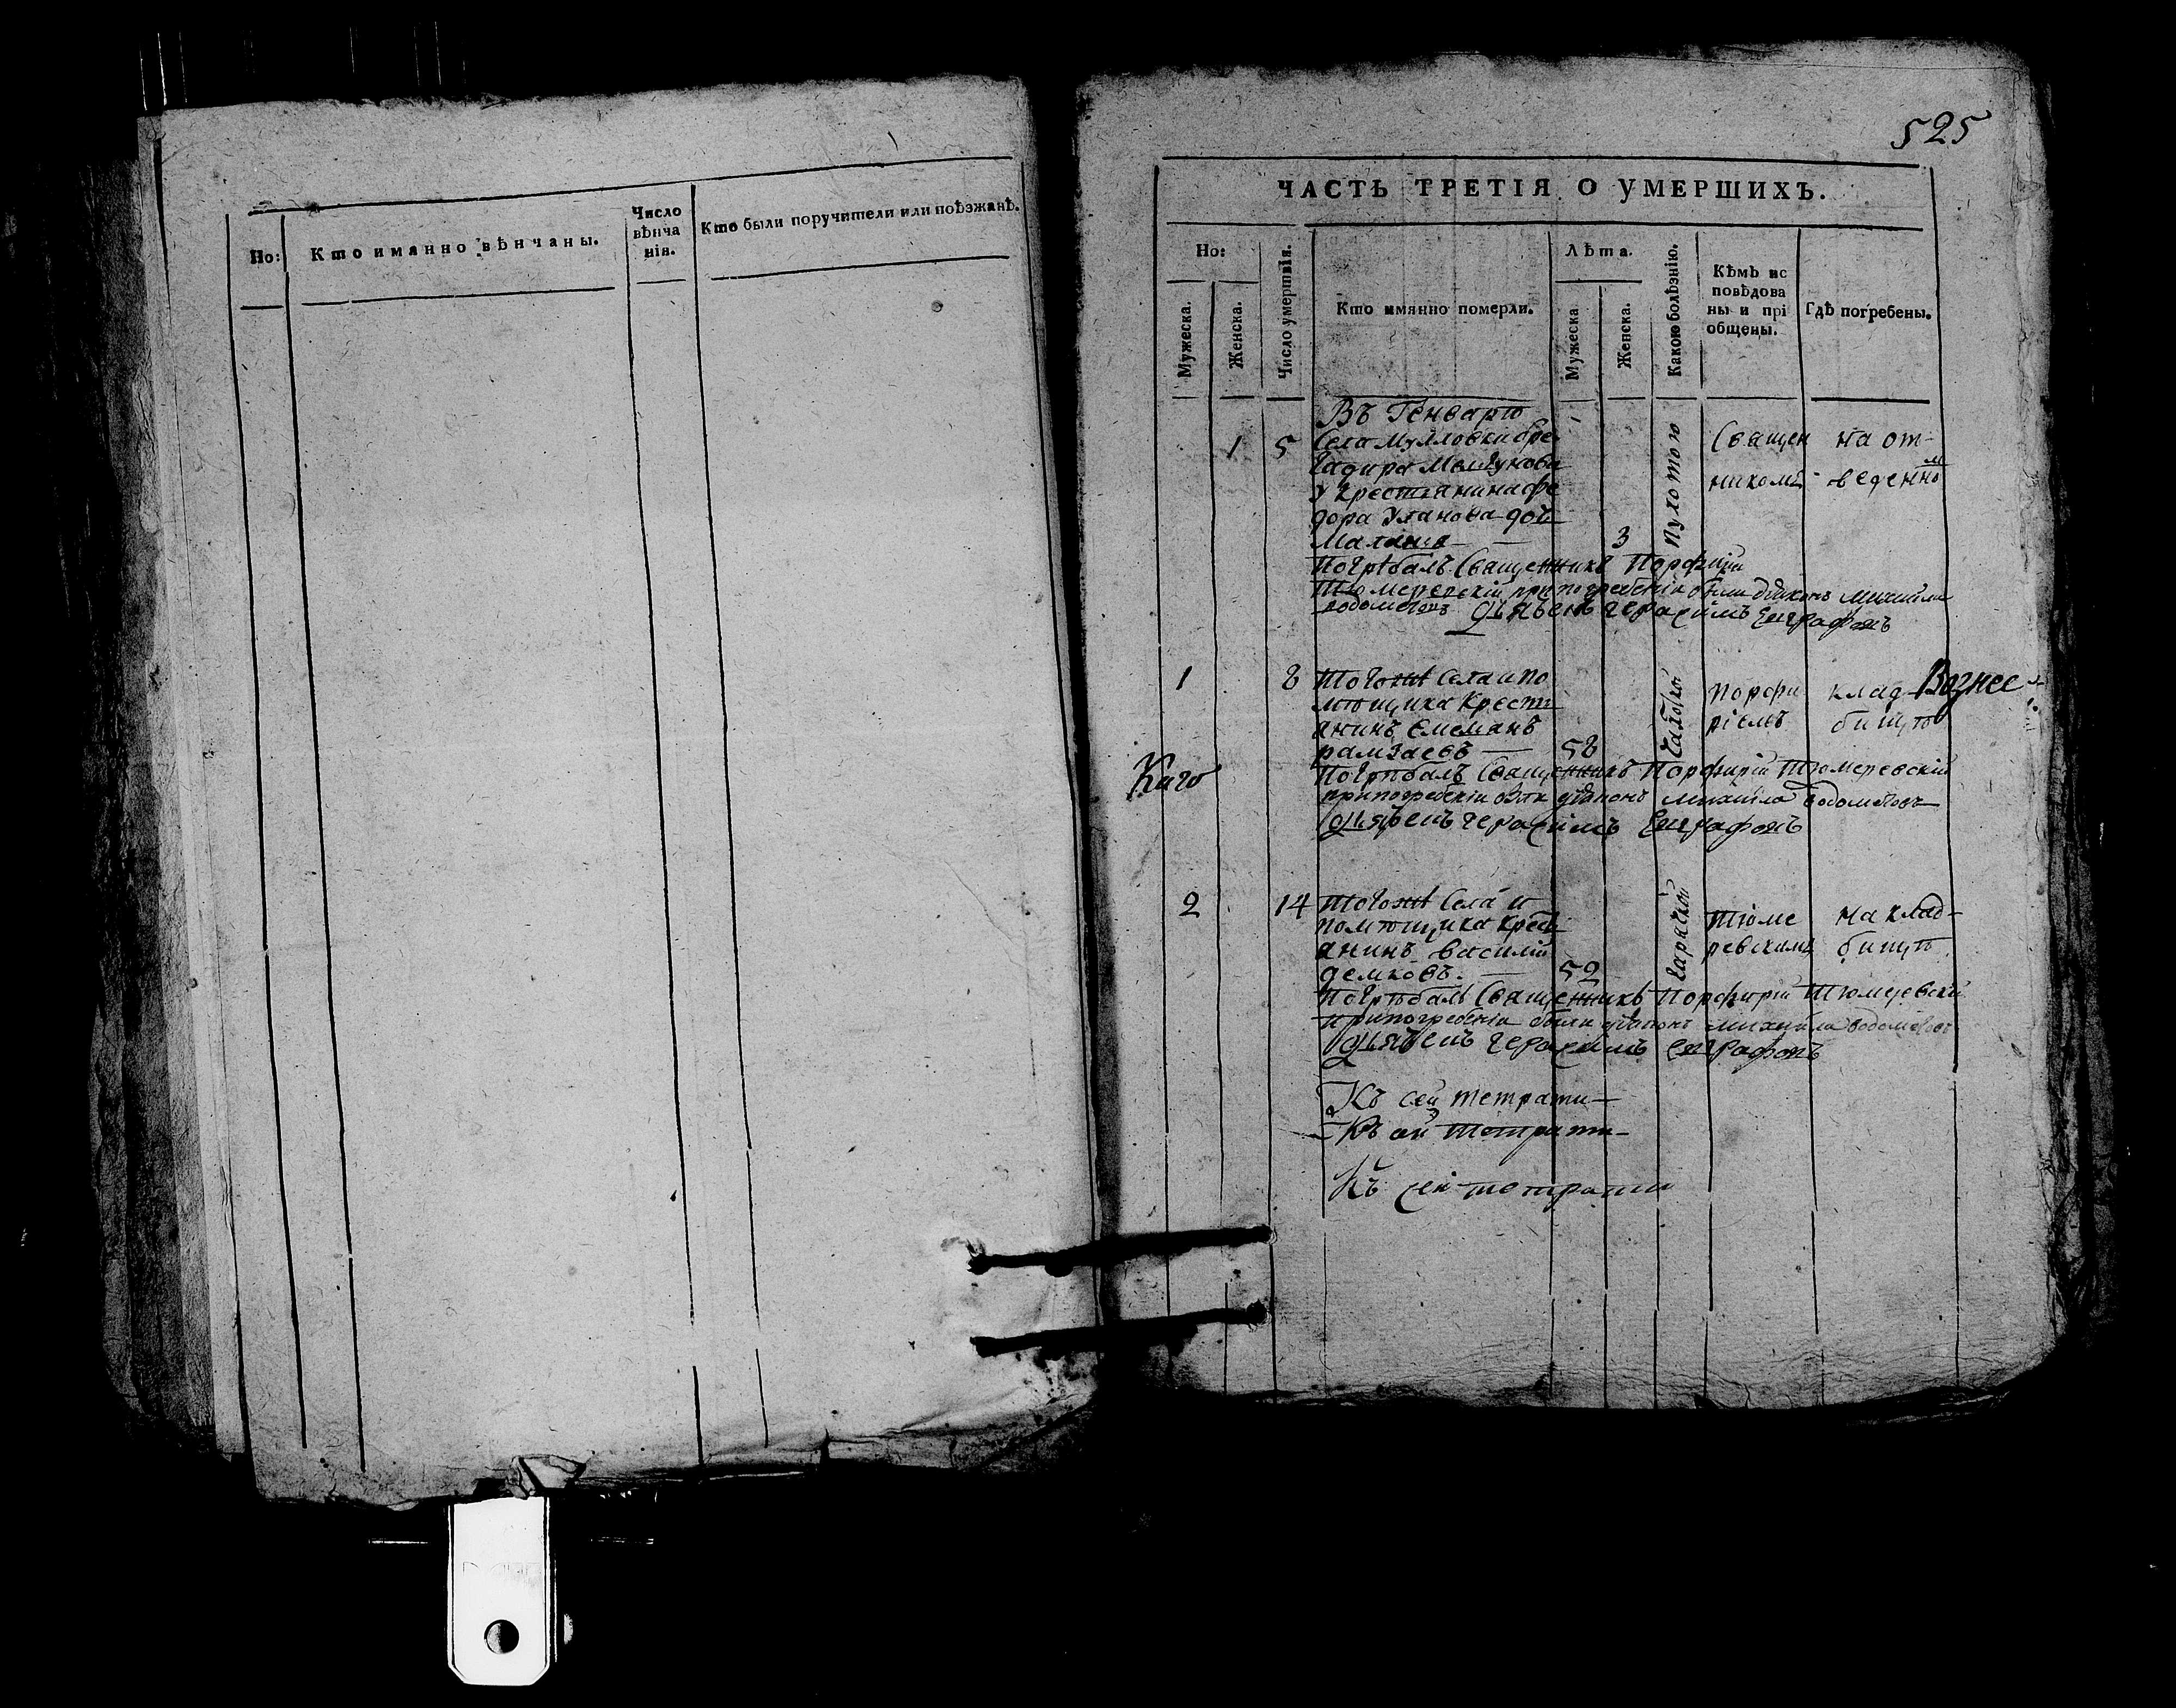 Но:
Кто имянно вѣнчаны.
Число
вѣнча
нія.
Кто были поручители или поѣзжанѣ.
525
ЧАСТЬ ТРЕТІЯ О УМЕРШИХЪ.
Но:
Мужеска.
Женска.
Число умертвія.
Кто имянно померли.
Лѣта.
Мужеска
Женска.
Какою болѣзнію.
Кѣмъ ис
повѣдова
ны и прі
общены.
Гдѣ погребены.
Въ Генварѣ
1 5 Села
крестьянина Фе
дора Уланова дочь
3
Пухотою
Священ
никомъ
на от-
веденно м
Погрѣбалъ Священникъ Порфирій
Тюмеревскій при погребеніи были діаконъ Михайла
Герасимъ Евграфовъ
1 8 Тогожѣ Села и по
мѣщика Крестя
анинъ Емельянъ
58
Порфи
ріемъ
клад
бищѣ
Вознее
Каго
Погрѣбалъ Священникъ Порфирій Тюмеревскій
при погребеніи были діаконъ Михайла
Герасимъ Евграфовъ
2 14 Тогожѣ Села и
помѣщика крест
анинъ Василій
демковъ. 52
Тюме
ревскимъ
на клад-
бищѣ
Погрѣбалъ Священникъ Порфирій Тюмеревскій
при погребеніи были діаконъ Михайла
Герасимъ Евграфовъ
Къ сей тетрати
Къ сей тетрати
Къ сей тетрати